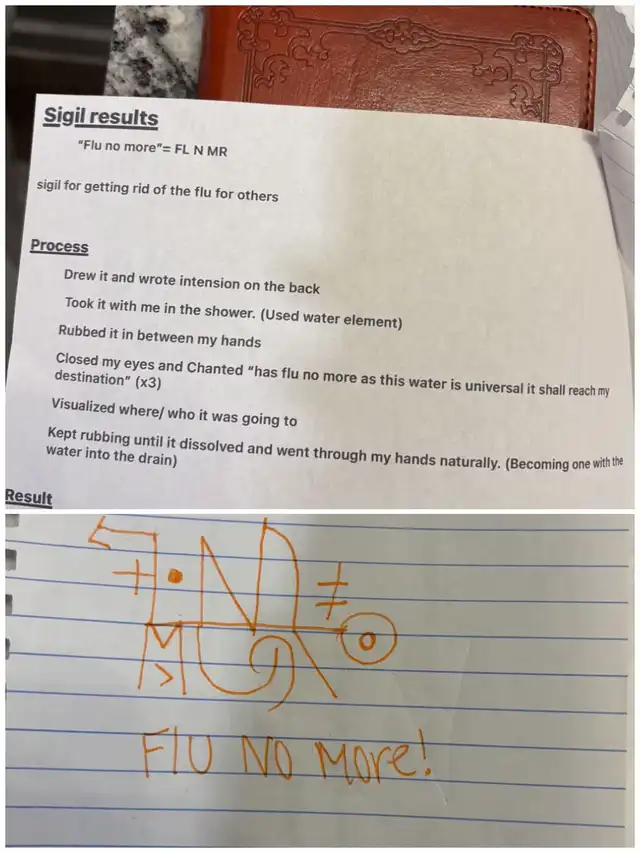 Sigil results
"Flu no more"= FL N MR
sigil for getting rid of the flu for others
Process
Drew it and wrote intension on the back
Took it with me in the shower. (Used water element)
Rubbed it in between my hands
Closed my eyes and Chanted "has flu no more as this water is universal it shall reach my
destination" (x3)
Visualized where/ who it was going to
Kept rubbing until it dissolved and went through my hands naturally. (Becoming one with the
water into the drain)
Result
FlU NO MOre!